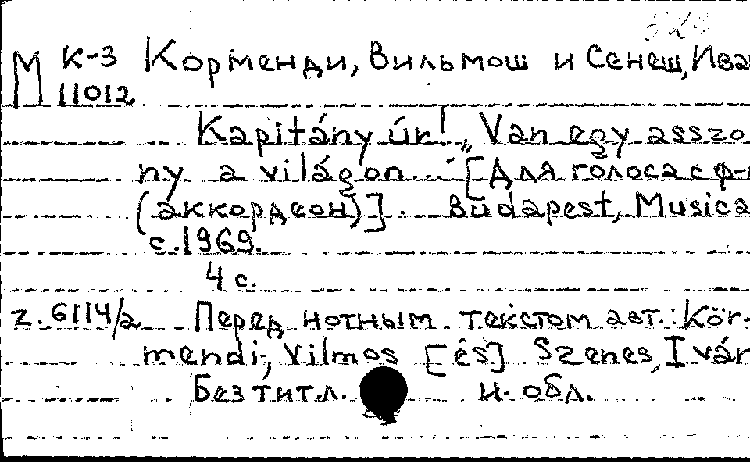 М К-3 Корменди, Вильмош и Сенеш, Ива
11012
Kapitány úr! „Van egy asszo
ny a világon..." [Для голоса с ф-
(аккордеон)]. Budapest, Musica
с.1969.
4 с.
z. 6114/a Перед нотным текстом авт.: Kör-
mendi, Vilmos [és] Szenes, Iván
Без тит. л. и обл.